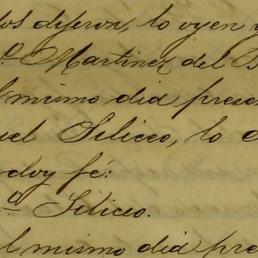 los dijeron, lo oyen y
º Martinez del B
l mismo dia presen
uel Siliceo, lo o
doy fé:
ª Siliceo.
l mismo dia pre